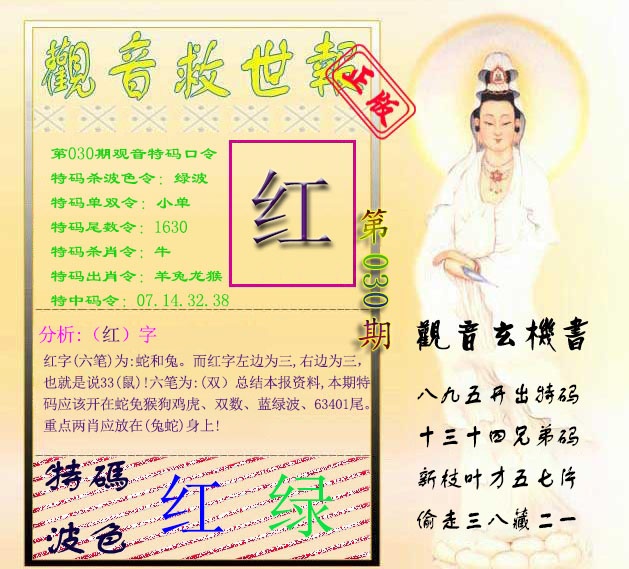 觀音救世報
正版
第030期观音特码口令
特码杀波色令：绿波
特码单双令：小单
特码尾数令：1630
特码杀肖令：牛
特码出肖令：羊兔龙猴
特中码令：07.14.32.38
红
第030期
分析:（红）字
红字(六笔)为:蛇和兔。而红字左边为三,右边为三,
也就是说33(鼠)!六笔为:(双）总结本报资料,本期特
码应该开在蛇兔猴狗鸡虎、双数、蓝绿波、63401尾。
重点两肖应放在(兔蛇)身上!
特碼
波色
红 绿
觀音玄機書
八九五开出特码
十三十四兄弟码
新枝叶才五七片
偷走三八藏二一